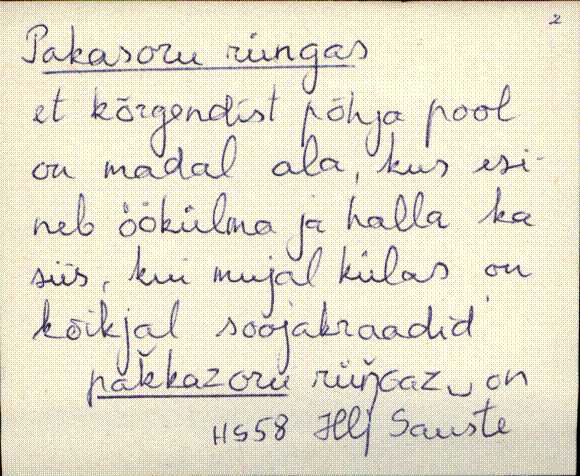 2
Pakasoru ringas
et kõrgendist põhja pool
on madal ala, kus esi-
neb öökülma ja halla ka
siis, kui mujal külas on
kõikjal soojakraadid
pak̆kazoru on
HS58 Ilj Sauste